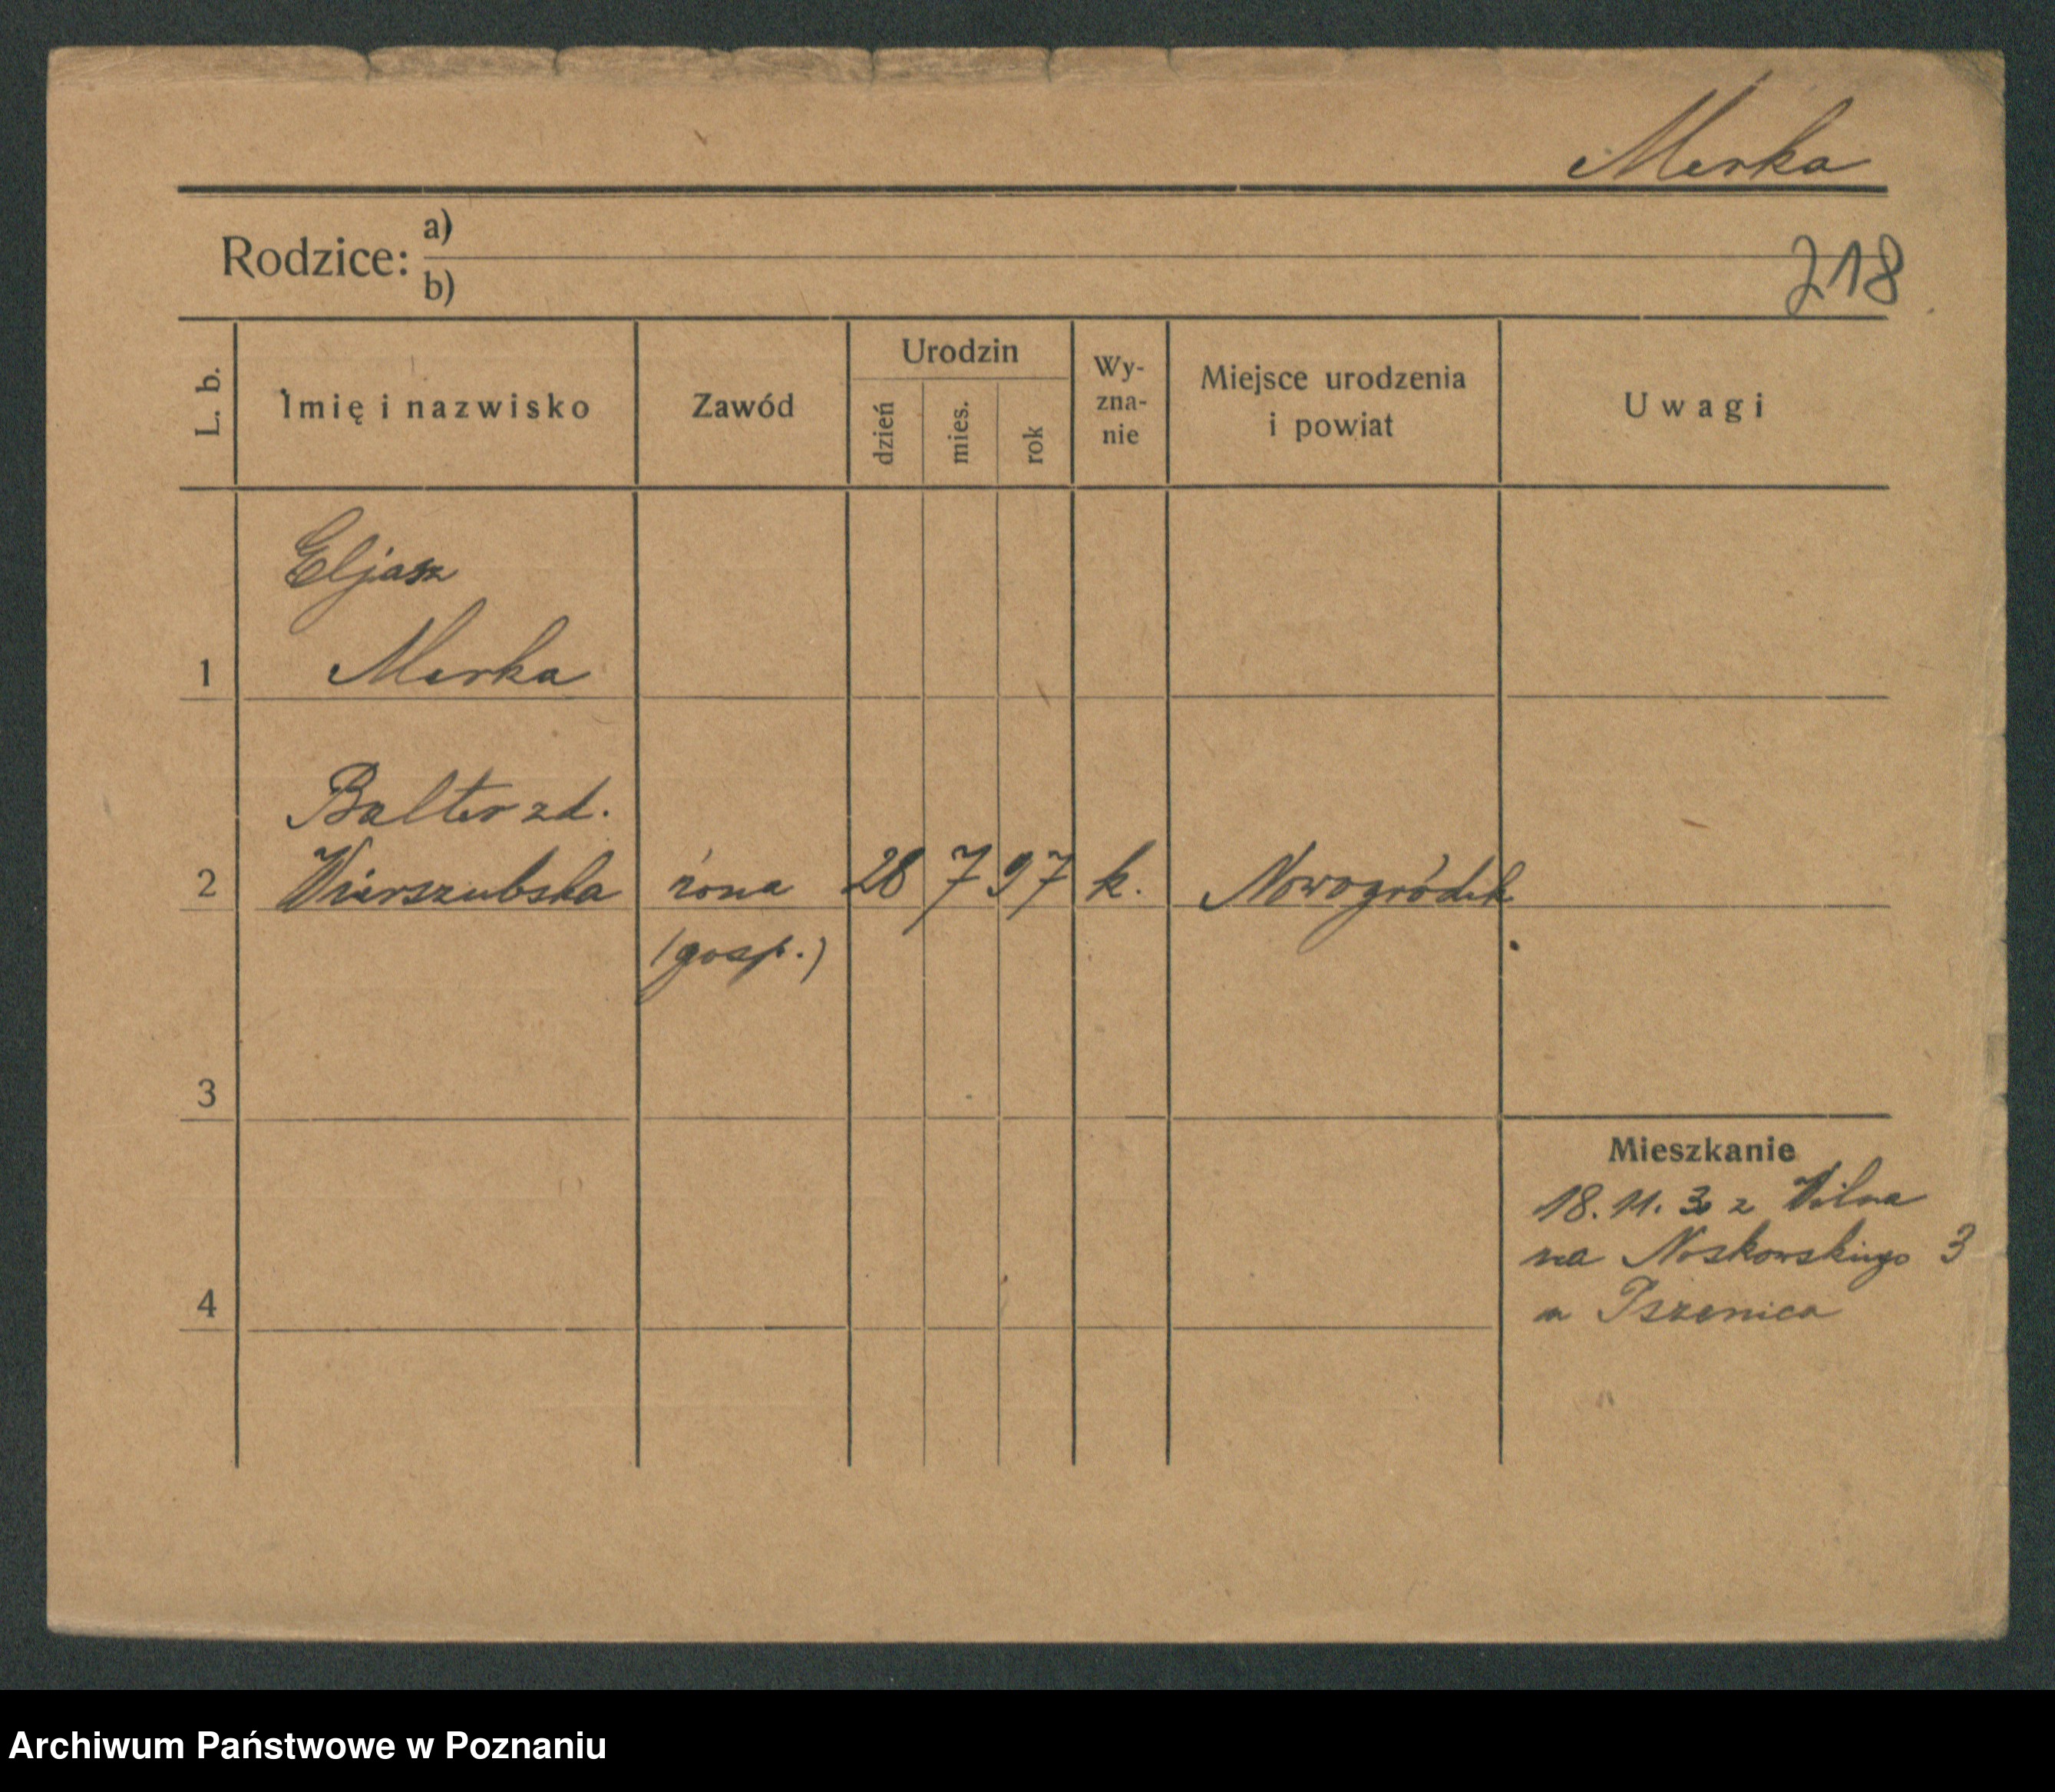 Merka
Rodzice: a)
b)
218
L. b.
Imię i nazwisko
Zawód
Urodzin
dzień
mies.
rok
Wy-
zna-
nie
Miejsce urodzenia
i powiat
Uwagi
Eljasz
1 Merka
Balter zd.
2 Wierszubska żona 28 7 97 k. Nowogródek
(gosp.)
3
Mieszkanie
18.11.30 z Wilna
na Noskowskiego 3
4 u Pszenica
Archiwum Państwowe w Poznaniu